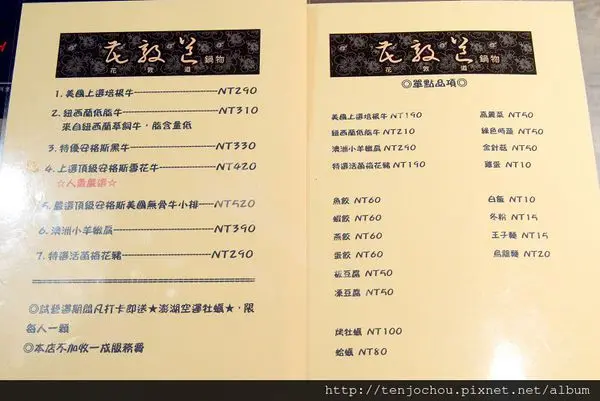 花敦道 鍋物
花敦道
1. 美國上選培根牛 NT290
2. 紐西蘭低脂牛 NT310
來自紐西蘭草飼牛，脂含量低
3. 特優安格斯黑牛 NT330
4. 上選頂級安格斯雪花牛 NT420
☆人氣嚴選☆
5. 嚴選頂級安格斯美國無骨牛小排 NT520
6. 澳洲小羊嫩肩 NT390
7. 特選活菌梅花豬 NT290
◎試營運期間凡打卡即送★澎湖空運牡蠣★，限
每人一顆
◎本店不加收一成服務費
花敦道 鍋物
花敦道
◎單點品項◎
美國上選培根牛 NT190
紐西蘭低脂牛 NT210
澳洲小羊嫩肩 NT290
特選活菌梅花豬 NT190
魚餃 NT60
蝦餃 NT60
燕餃 NT60
蛋餃 NT60
板豆腐 NT50
凍豆腐 NT50
烤牡蠣 NT100
蛤蠣 NT80
高麗菜 NT50
綠色時蔬 NT50
金針菇 NT50
雞蛋 NT10
白飯 NT10
冬粉 NT15
王子麵 NT15
烏龍麵 NT20
http://tenjochou.pixnet.net/album